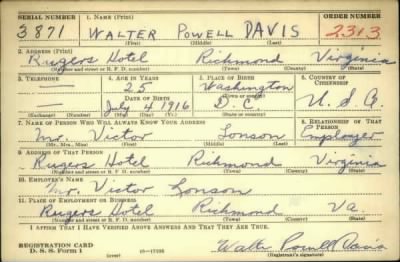 SERIAL NUMBER 1. NAME (Print) ORDER NUMBER
3871 WALTER POWELL DAVIS 2313
(First) (Middle) (Last)
2. ADDRESS (Print)
Rugers Hotel Richmond Virginia
(Number and street or R. F. D. number) (Town) (County) (State)
3. TELEPHONE 4. AGE IN YEARS 5. PLACE OF BIRTH 6. COUNTRY OF CITIZENSHIP
— 25 Washington
DATE OF BIRTH (Town or county)
— July 4 1916 D.C. U.S.A.
(Exchange) (Number) (Mo.) (Day) (Yr.) (State or country)
7. NAME OF PERSON WHO WILL ALWAYS KNOW YOUR ADDRESS 8. RELATIONSHIP OF THAT PERSON
Mr. Victor Lonson Employer
(Mr., Mrs., Miss) (First) (Middle) (Last)
9. ADDRESS OF THAT PERSON
Rugers Hotel Richmond Virginia
(Number and street or R. F. D. number) (Town) (County) (State)
10. EMPLOYER'S NAME
Mr. Victor Lonson
11. PLACE OF EMPLOYMENT OR BUSINESS
Rugers Hotel Richmond Va.
(Number and street or R. F. D. number) (Town) (County) (State)
I AFFIRM THAT I HAVE VERIFIED ABOVE ANSWERS AND THAT THEY ARE TRUE.
REGISTRATION CARD
D. S. S. Form 1 (over) Walter Powell Davis
(Registrant's signature)